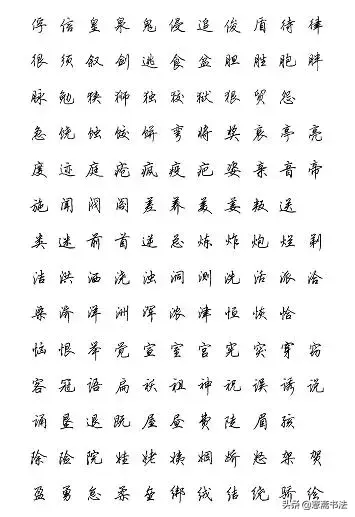 俘 信 皇 泉 鬼 侵 追 俊 盾 待 律
很 须 叙 剑 逃 食 盆 胆 胜 胞 胖
脉 勉 狭 狮 独 狡 狱 狠 贸 怨
急 饶 蚀 饺 饼 弯 将 奖 哀 亭 亮
度 迹 庭 疮 疯 疫 疤 姿 亲 音 帝
施 闻 阀 阁 差 养 美 姜 叛 送
类 迷 前 首 逆 总 炼 炸 炮 烂 剃
洁 洪 洒 浇 浊 洞 测 洗 活 派 洽
染 济 洋 洲 浑 浓 津 恒 恢 恰
恼 恨 举 觉 宣 室 宫 宪 突 穿 窃
客 冠 语 扁 袄 祖 神 祝 误 诱 说
诵 垦 退 既 屋 昼 费 陡 眉 孩
除 险 院 娃 姥 姨 姻 娇 怒 架 贺
盈 勇 怠 柔 垒 绑 绒 结 绕 骄 绘
头条@意高书法